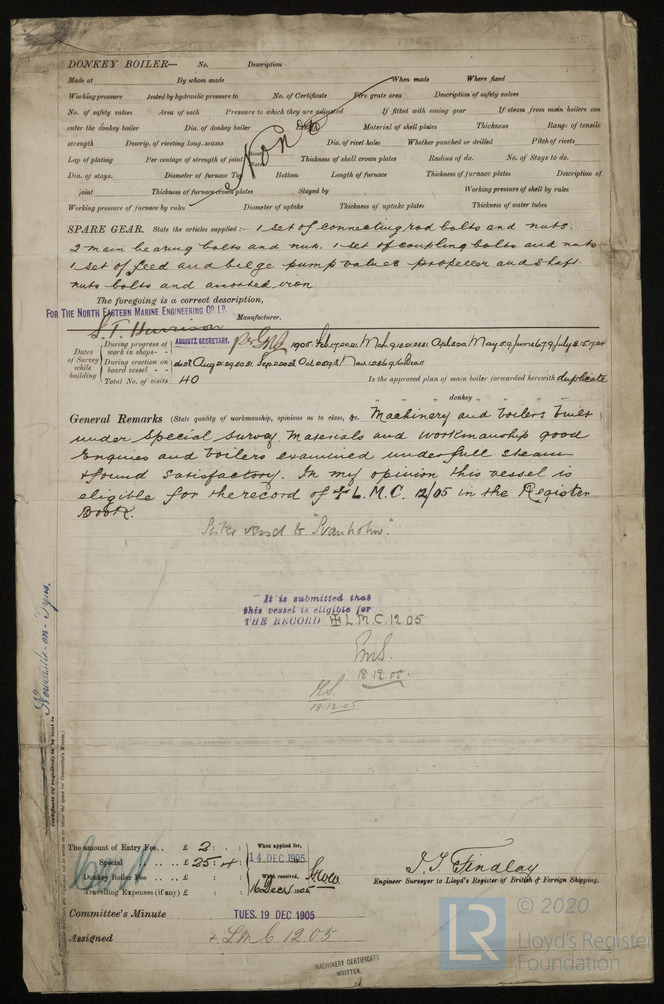 DONKEY BOILER— No. Description
Made at By whom made When made Where fixed
Working pressure tested by hydraulic pressure to No. of Certificate Fire grate area Description of safety valves
No. of safety valves Area of each Pressure to which they are adjusted If fitted with easing gear If steam from main boilers can
enter the donkey boiler Dia. of donkey boiler Material of shell plates Thickness Range of tensile
strength Descrip. of riveting long. seams Dia. of rivet holes Whether punched or drilled Pitch of rivets
Lap of plating Per centage of strength of joint Thickness of shell crown plates Radius of do. No. of Stays to do.
Dia. of stays. Diameter of furnace Top Bottom Length of furnace Thickness of furnace plates Description of
joint Thickness of furnace crown plates Stayed by Working pressure of shell by rules
Working pressure of furnace by rules Diameter of uptake Thickness of uptake plates Thickness of water tubes
None
SPARE GEAR. State the articles supplied:— 1 set of connecting rod bolts and nuts.
2 main bearing bolts and nuts. 1 set of coupling bolts and nuts
1 set of feed and bilge pump valves propeller and shaft.
nuts bolts and assorted iron
The foregoing is a correct description,
FOR THE NORTH EASTERN MARINE ENGINEERING CO. LD. Manufacturer.
S. T. Harrison
ASSIST. SECRETARY.
Dates of Survey while building
During progress of work in shops - - 1905.
During erection on board vessel - - -
Total No. of visits 40 Is the approved plan of main boiler forwarded herewith duplicate
" " " donkey " " "
General Remarks (State quality of workmanship, opinions as to class, &c. Machinery and boilers built
under Special Survey Materials and workmanship good
Engines and boilers examined under full steam
& found satisfactory. In my opinion this vessel is
eligible for the record of ✠ L.M.C. 12/05 in the Register
Book.
Sister vessel to "Svanholm".
It is submitted that
this vessel is eligible for
THE RECORD ✠ L.M.C. 12.05
18.12.05.
18.12.05
Newcastle-on-Tyne.
Certificate (if required) to be sent to
The amount of Entry Fee.. £ 2 : :
Special .. .. £ 25 : 4 :
Donkey Boiler Fee .. .. £ : :
Travelling Expenses (if any) £ : :
When applied for,
14 DEC 1905
When received,
16 Dec 1905
J. T. Findlay
Engineer Surveyor to Lloyd's Register of British & Foreign Shipping.
Committee's Minute TUES. 19 DEC 1905
Assigned + LMC 12.05
MACHINERY CERTIFICATE
WRITTEN.
LR
© 2020
Lloyd's Register
Foundation